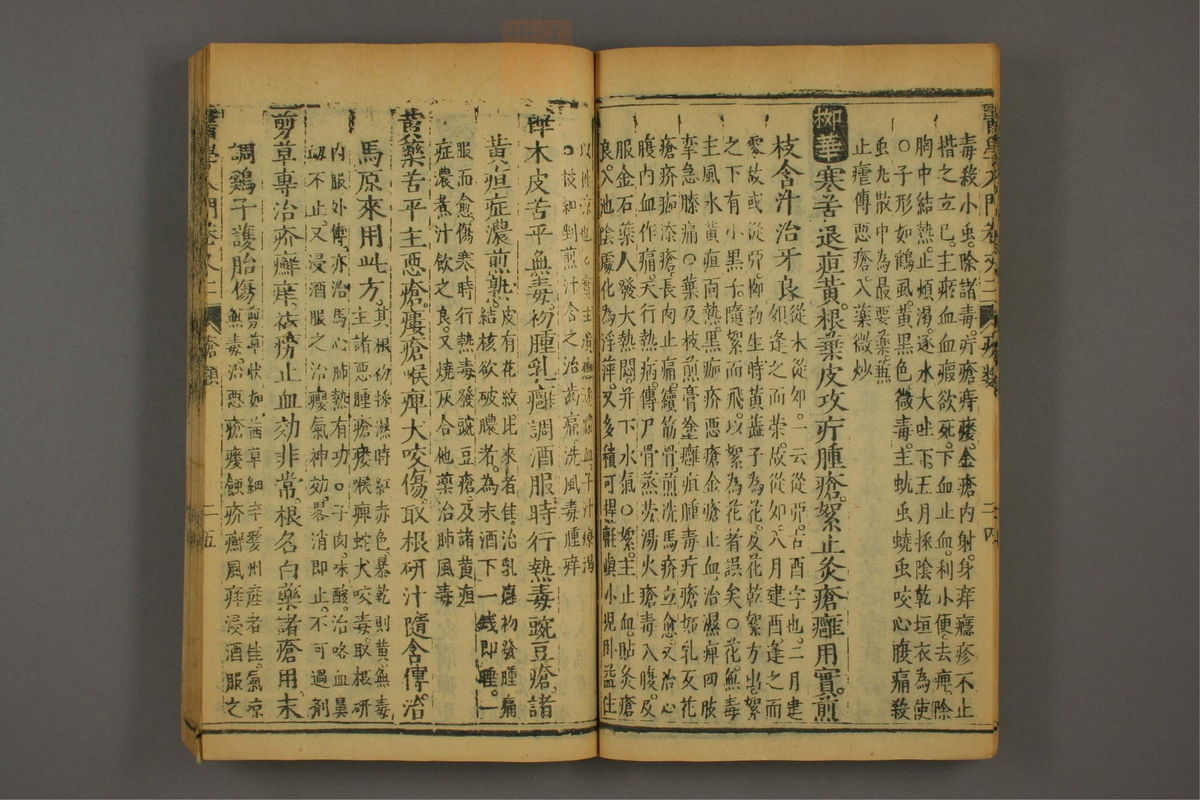 醫學入門卷之二 瘡類 二四
毒殺小虫。除諸毒。疔瘡痔瘻。金瘡內射。身痒癮疹不止
揩之立已。主瘀血血瘕欲死。下血止血。利小便。去痺除
胸中結熱。止煩渴。逐水大吐下。五月採陰乾垣衣為使
○子形如鶴虱。黃黑色微毒。主蚘虫蟯虫咬心腹痛。殺
虫九散中為最要藥。無
止瘧傅惡瘡。入藥微炒
柳華寒苦退疸黃。根葉皮攻疔腫瘡。絮止灸瘡癰用實。煎
枝含汁治牙良
從木從卯。一云從丣。古酉字也。二月建
卯。逢之而榮。故從卯。八月建酉逢之而
零故或從丣。柳初生時黃蕋子為花。及花乾絮方出。絮
之下有小黑子。隨絮而飛。以絮為花者誤矣○花無毒
主風水黃疸面熱。黑痂疥惡瘡金瘡止血。治濕痺四肢
攣急膝痛○葉及枝煎膏塗癰疽腫毒疔瘡妬乳反花
瘡疥痂漆瘡。長肉止痛。續筋骨。煎洗馬疥立愈。又治心
腹內血作痛。天行熱病。傳尸骨蒸勞。湯火瘡毒入腹。及
服金石藥人發大熱悶。并下水氣○絮。主止血。貼灸瘡
良。入池陰處化為浮萍。又多積可捍氈。與小兒卧益佳
○枝和剉煎汁含之治齒痛。洗風毒腫痒
樺木皮苦平無毒。初腫乳癰調酒服。時行熱毒豌豆瘡。諸
黃疸症濃煎熟
皮有花紋北來者佳。治乳癰初發腫痛
結核欲破膿者。為末酒下一錢即睡。一
服而愈。傷寒時行熱毒發豌豆瘡。及諸黃疸
症濃煮汁飲之良。又燒灰合他藥治肺風毒
黃藥苦平主惡瘡。瘻瘡喉痺犬咬傷。取根研汁隨含傅。治
馬原來用此方
其根初採濕時紅赤色。暴乾則黃無毒
主諸惡腫瘡瘻喉痺蛇犬咬毒。取根研
內服外傅。亦治馬心肺熱有功。○子肉。味酸。治咯血鼻
衄不止。又浸酒服之治癭氣神效。畧消即止。不可過劑
剪草專治疥癬痒。痰癆止血効非常。根名白藥諸瘡用。末
調雞子護胎傷
剪草狀如茜草細辛。婺州產者佳。氣凉
無毒。治惡瘡瘻蝕疥癬風痒浸酒服之
醫學入門卷之二 瘡類 二五